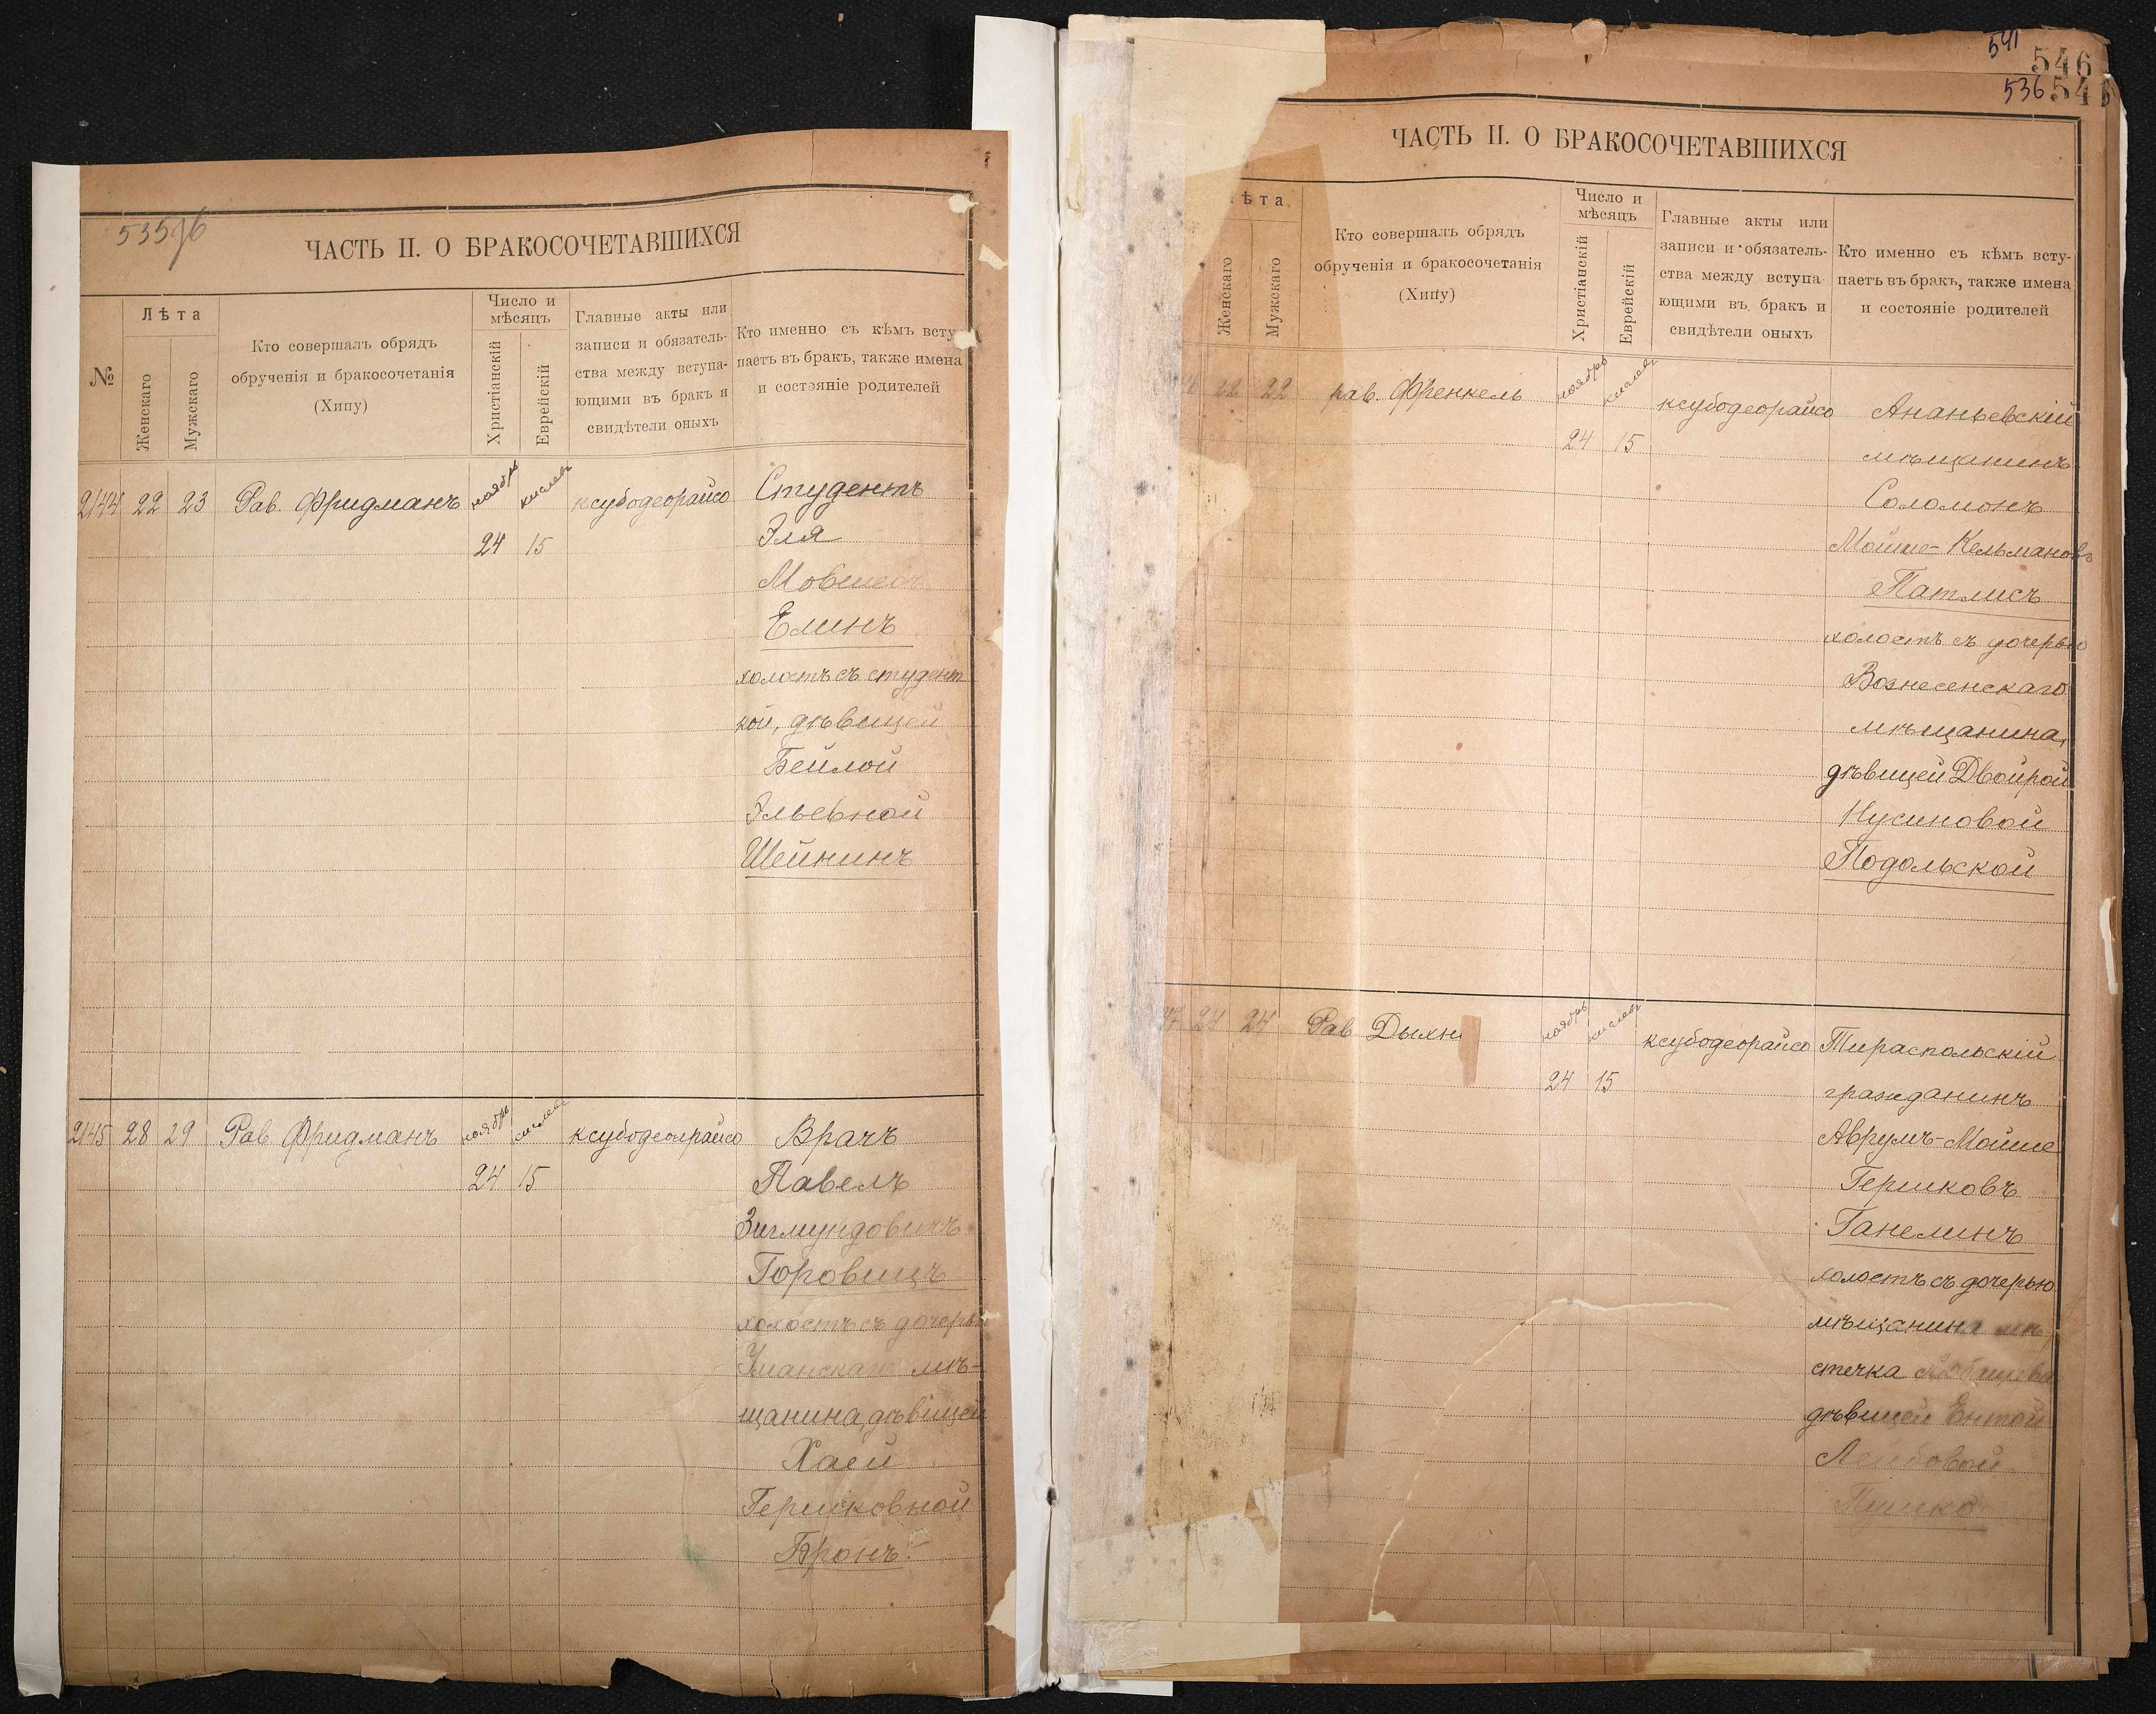 ЧАСТЬ II. О БРАКОСОЧЕТАВШИХСЯ
№
Лѣта
Женскаго
Мужскаго
Кто совершалъ обрядъ
обрученія и бракосочетанія
(Хипу)
Число и
мѣсяцъ
Христіанскій
Еврейскій
Главные акты или
записи и обязатель-
ства между вступа-
ющими въ бракъ и
свидѣтели оныхъ
Кто именно съ кѣмъ всту
паетъ въ бракъ, также имена
и состояніе родителей
2144 22 23 Рав. Фридманъ ноябрь кислев ксубодеорайсо Студентъ
24 15 Эля
Мовшев
Елинъ
холостъ съ студент
кой, дѣвицей
Бейлой
Эльевной
Шейнинъ
2145 28 29 Рав. Фридманъ ноябрь кислев ксубодеорайсо Врачъ
24 15 Павелъ
Зигмундовичъ
Горовицъ
холостъ съ дочерью
Уманскаго мѣ-
щанина, дѣвицей
Хаей
Гершковной
Бронъ.
541
546
536 546
ЧАСТЬ II. О БРАКОСОЧЕТАВШИХСЯ
ѣта
Женскаго
Мужскаго
Кто совершалъ обрядъ
обрученія и бракосочетанія
(Хипу)
Число и
мѣсяцъ
Христіанскій
Еврейскій
Главные акты или
записи и обязатель-
ства между вступа
ющими въ бракъ и
свидѣтели оныхъ
Кто именно съ кѣмъ всту-
паетъ въ бракъ, также имена
и состояніе родителей
22 22 рав. Френкель ноябрь кислев ксубодеорайсо Ананьевскій
24 15 мѣщанинъ
Соломонъ
Мойше-Кельмановъ
Патлисъ
холостъ съ дочерью
Вознесенскаго
мѣщанина,
дѣвицей Двойрой
Нусиновой
Подольской
24 24 Рав. Дыхн ноябрь кислев ксубодеорайсо Тираспольскій
24 15 гражданинъ
Аврумъ-Мойше
Гершковъ
Ганелинъ
холостъ съ дочерью
мѣщанина мѣ
стечка
дѣвицей Ентой
Лейбовой